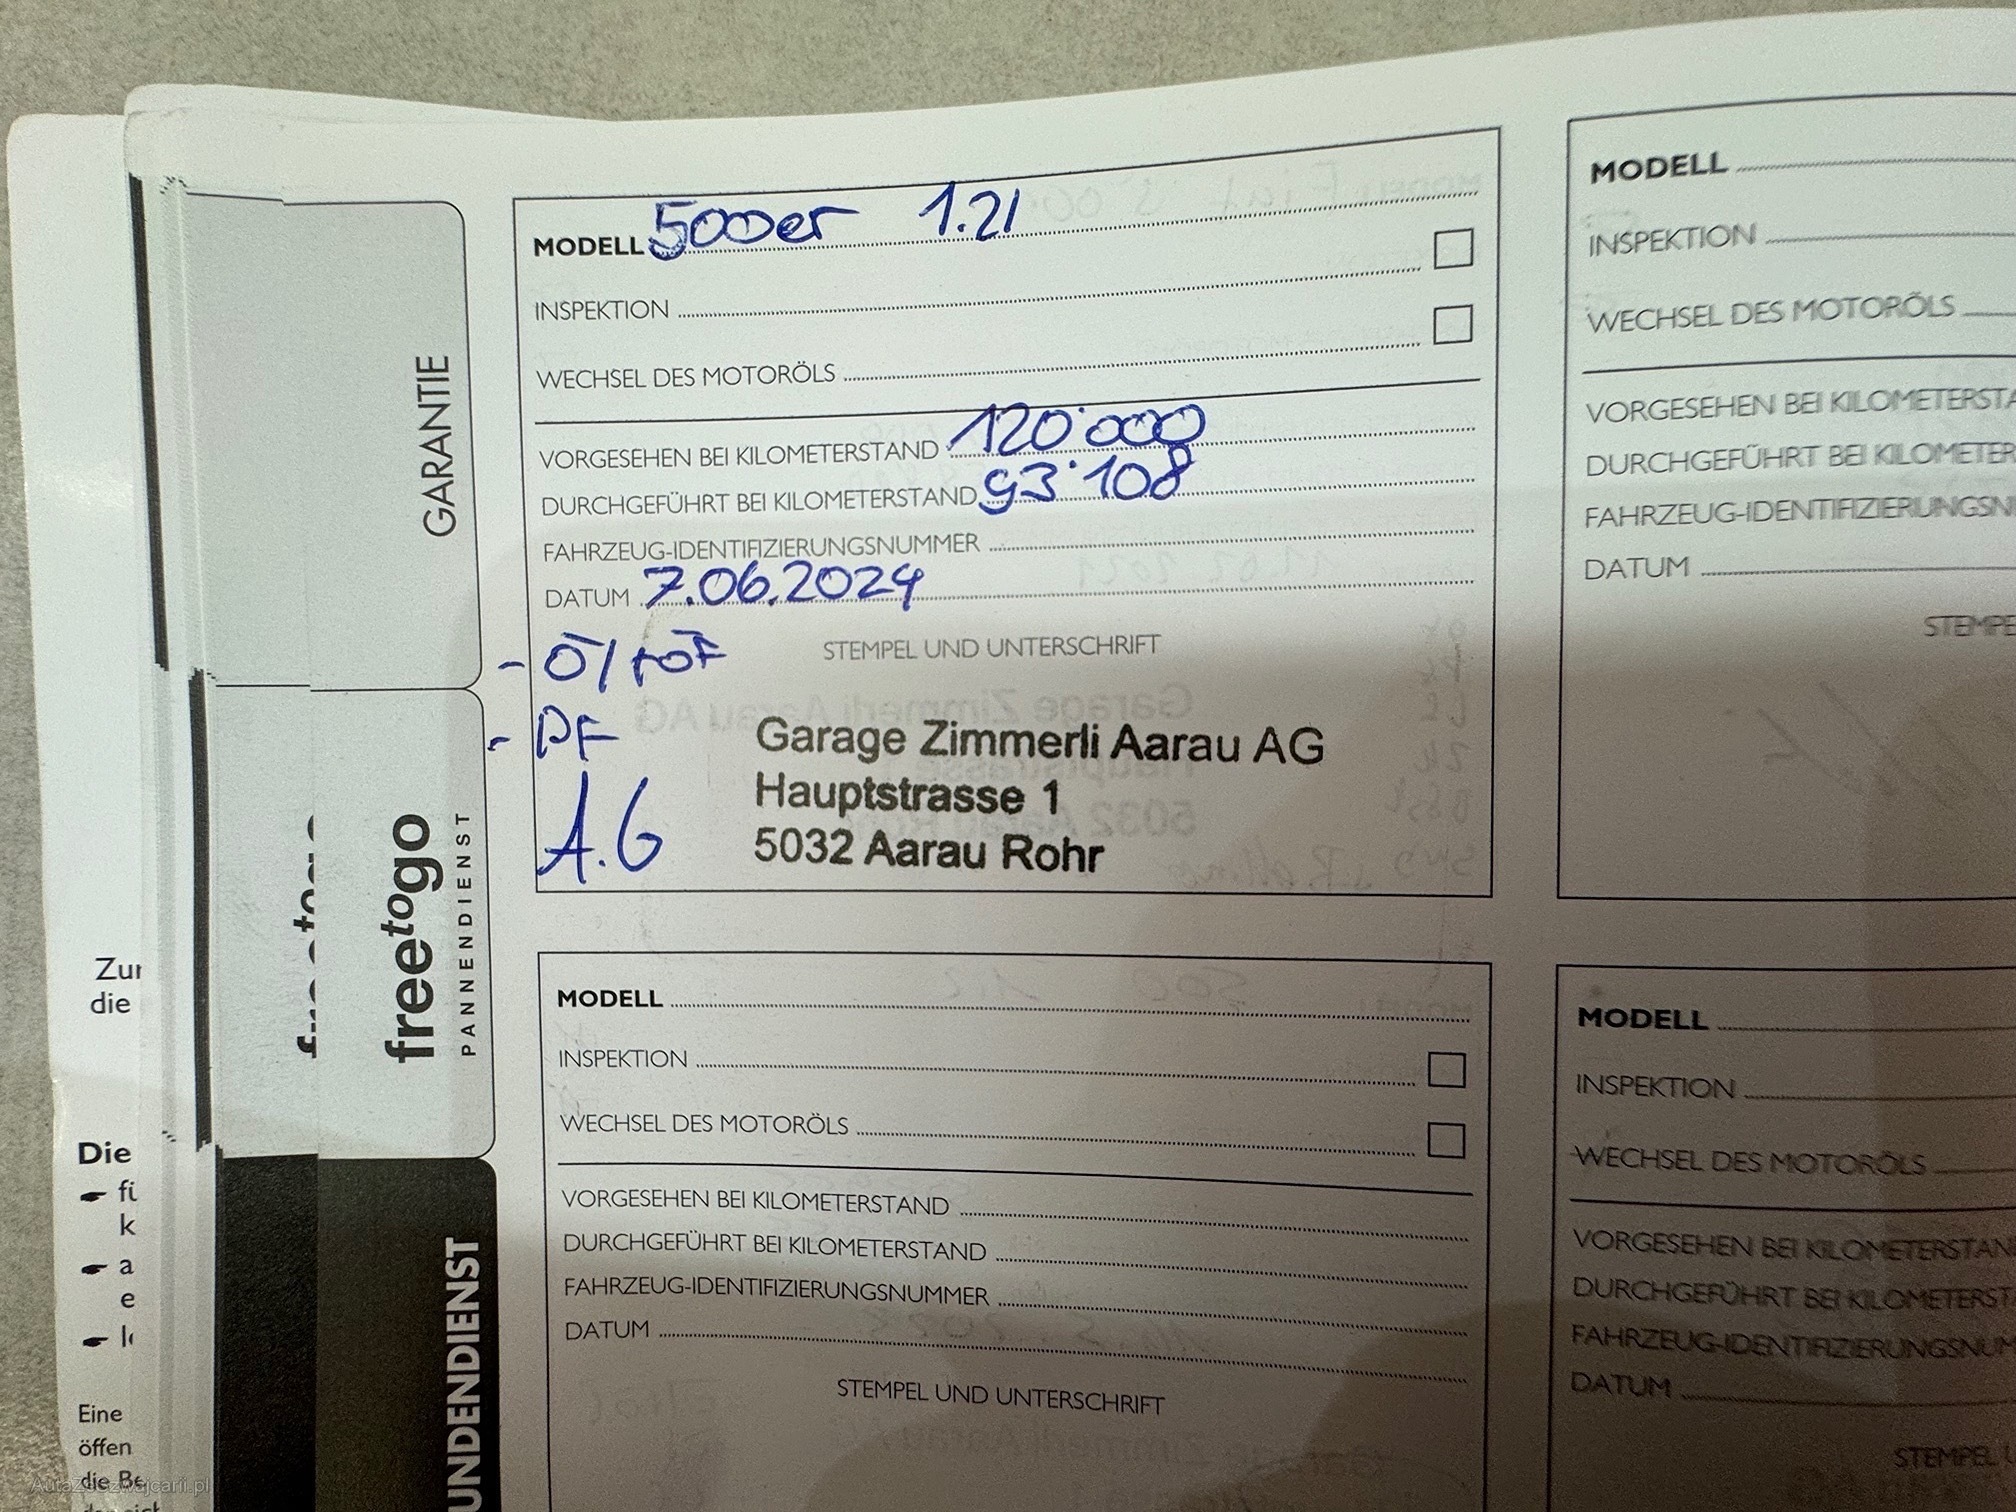 GARANTIE
freetogo
PANNENDIENST
UNDENDIENST
Zur
die
Die
fi
k
a
e
Eine
öffen
die Be
MODELL 500er 1.2l
INSPEKTION
WECHSEL DES MOTORÖLS
VORGESEHEN BEI KILOMETERSTAND 120'000
DURCHGEFÜHRT BEI KILOMETERSTAND 93'108
FAHRZEUG-IDENTIFIZIERUNGSNUMMER
DATUM 7.06.2024
STEMPEL UND UNTERSCHRIFT
- Öl + öF
- PF
A.G
Garage Zimmerli Aarau AG
Hauptstrasse 1
5032 Aarau Rohr
MODELL
INSPEKTION
WECHSEL DES MOTORÖLS
VORGESEHEN BEI KILOMETERSTA
DURCHGEFÜHRT BEI KILOMETER
FAHRZEUG-IDENTIFIZIERUNGSN
DATUM
STEMPE
MODELL
INSPEKTION
WECHSEL DES MOTORÖLS
VORGESEHEN BEI KILOMETERSTAND
DURCHGEFÜHRT BEI KILOMETERSTAND
FAHRZEUG-IDENTIFIZIERUNGSNUMMER
DATUM
STEMPEL UND UNTERSCHRIFT
MODELL
INSPEKTION
WECHSEL DES MOTORÖLS
VORGESEHEN BEI KILOMETERSTAN
DURCHGEFÜHRT BEI KILOMETERST
FAHRZEUG-IDENTIFIZIERUNGSNUM
DATUM
STEMPEL U
AutaZeSzwajcarii.pl